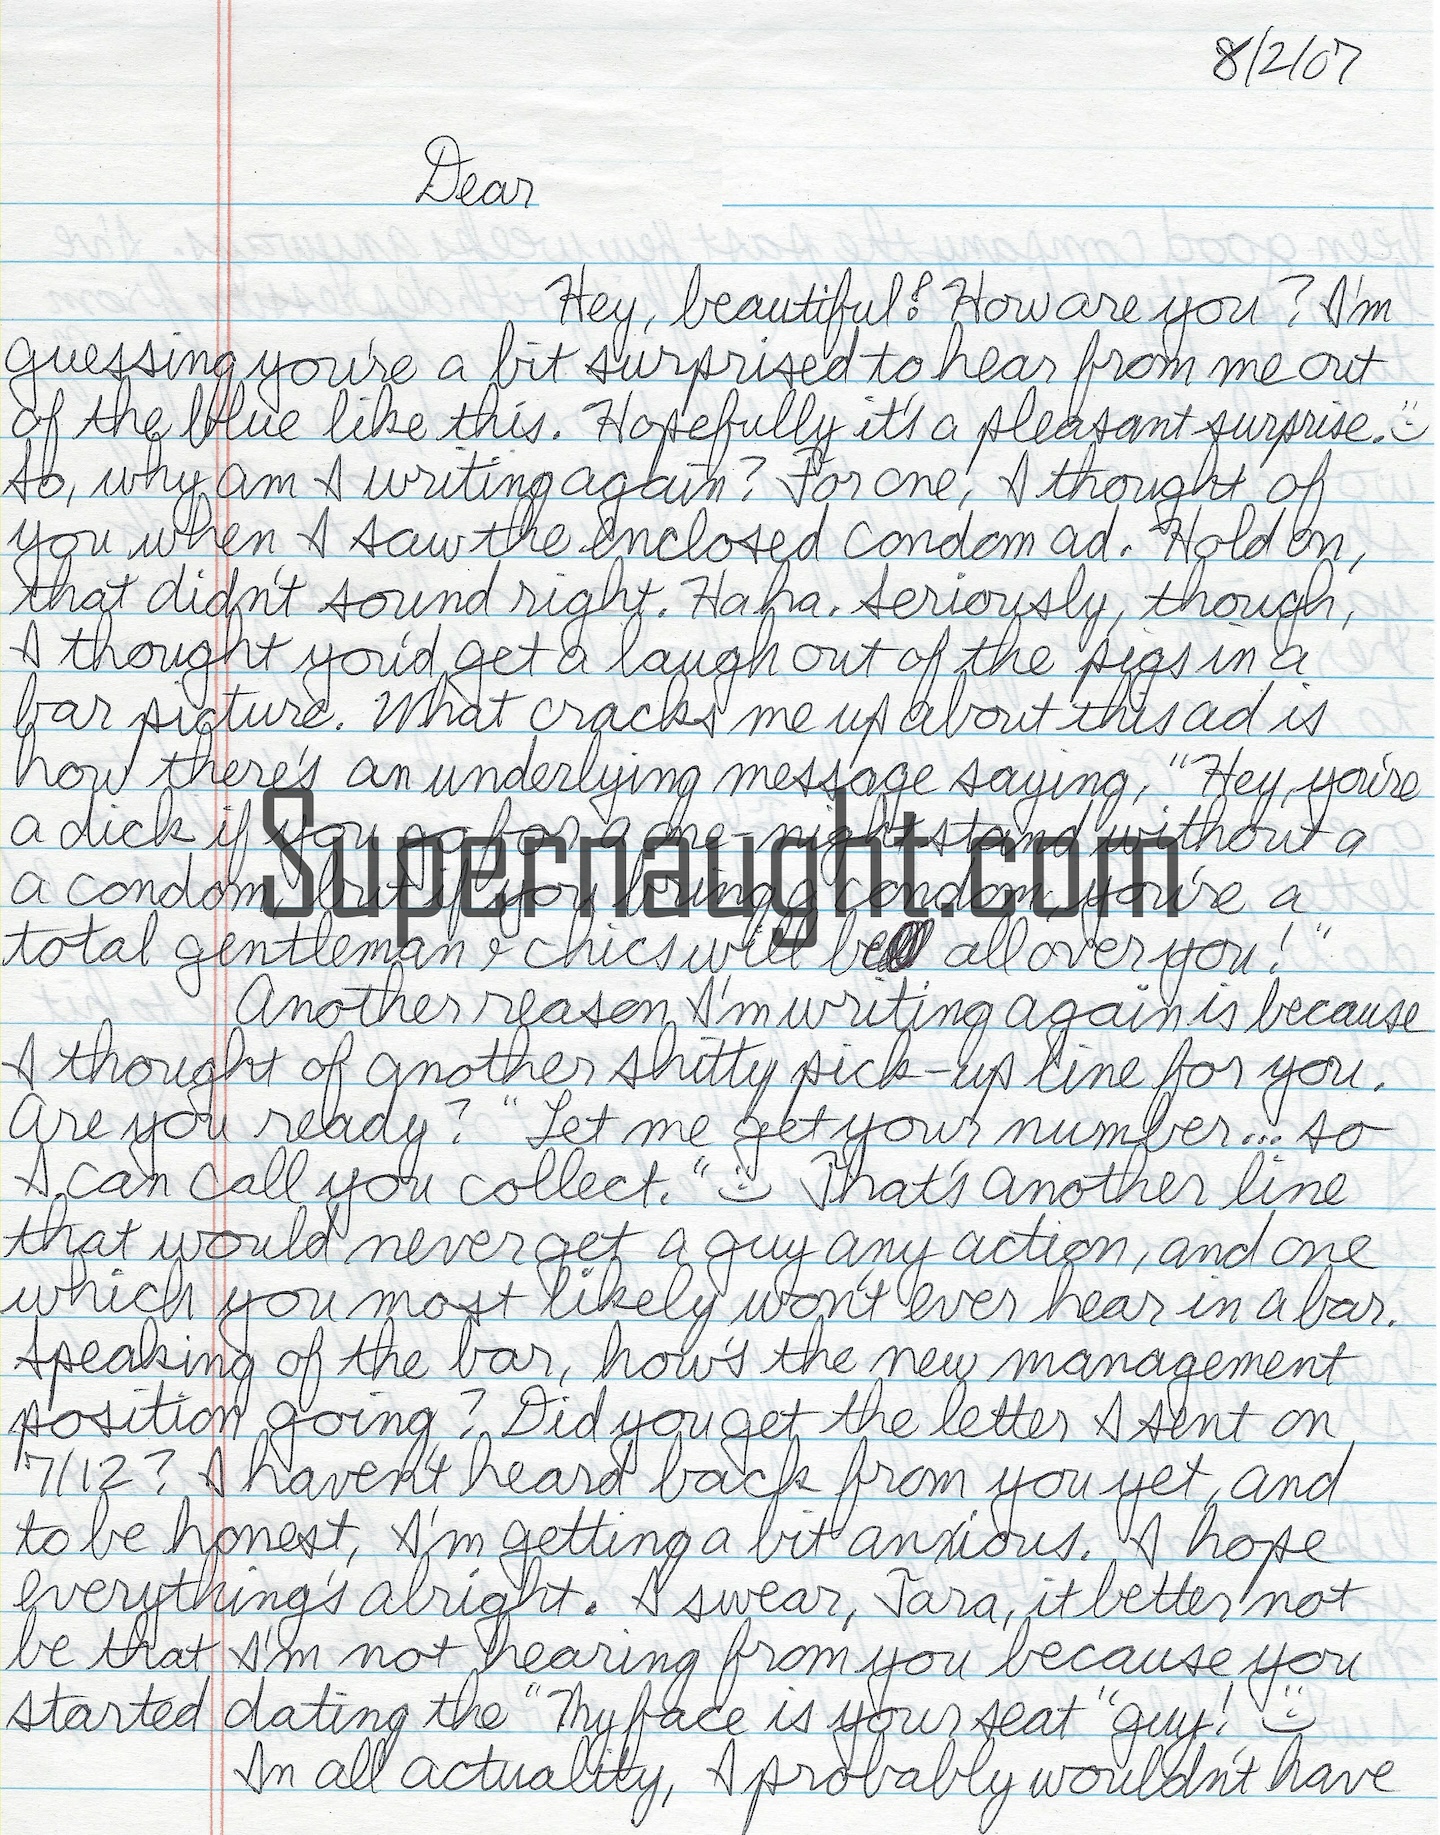 8/2/07
Dear
Hey, beautiful! How are you? I'm
guessing you're a bit surprised to hear from me out
of the blue like this. Hopefully it's a pleasant surprise.
So, why am I writing again? For one, I thought of
you when I saw the enclosed condom ad. Hold on,
that didn't sound right. Haha. Seriously, though,
I thought you'd get a laugh out of the pigs in a
bar picture. What cracks me up about this ad is
how there's an underlying message saying, "Hey, you're
a dick if you go for a one-night stand without a
a condom, but if you bring a condom, you're a
Supernaught.com
total gentleman & chics will be all over you!"
Another reason I'm writing again is because
I thought of another shitty pick-up line for you.
Are you ready? "Let me get your number... so
I can call you collect." That's another line
that would never get a guy any action, and one
which you most likely won't ever hear in a bar.
Speaking of the bar, how's the new management
position going? Did you get the letter I sent on
7/12? I haven't heard back from you yet, and
to be honest, I'm getting a bit anxious. I hope
everything's alright. I swear, Tara, it better not
be that I'm not hearing from you because you
started dating the "My face is your seat" guy!
In all actuality, I probably wouldn't have